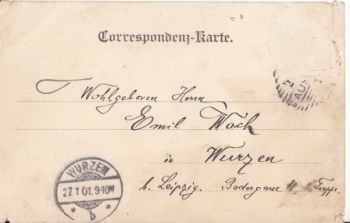 Correspondenz-Karte.
Wohlgeboren Herrn
Emil Wach
in Wurzen
b. Leipzig. Badergasse Treppe
WURZEN
27.1.01.9-10V
* b